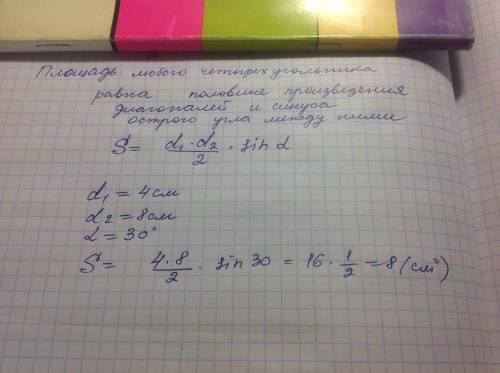 Площадь любого четырехугольника
равна половине произведения
диагоналей и синуса
острого угла между ними
S = d₁·d₂/2 · sin α
d₁ = 4см
d₂ = 8см
α = 30°
S = 4·8/2 · sin 30 = 16 · 1/2 = 8 (см²)